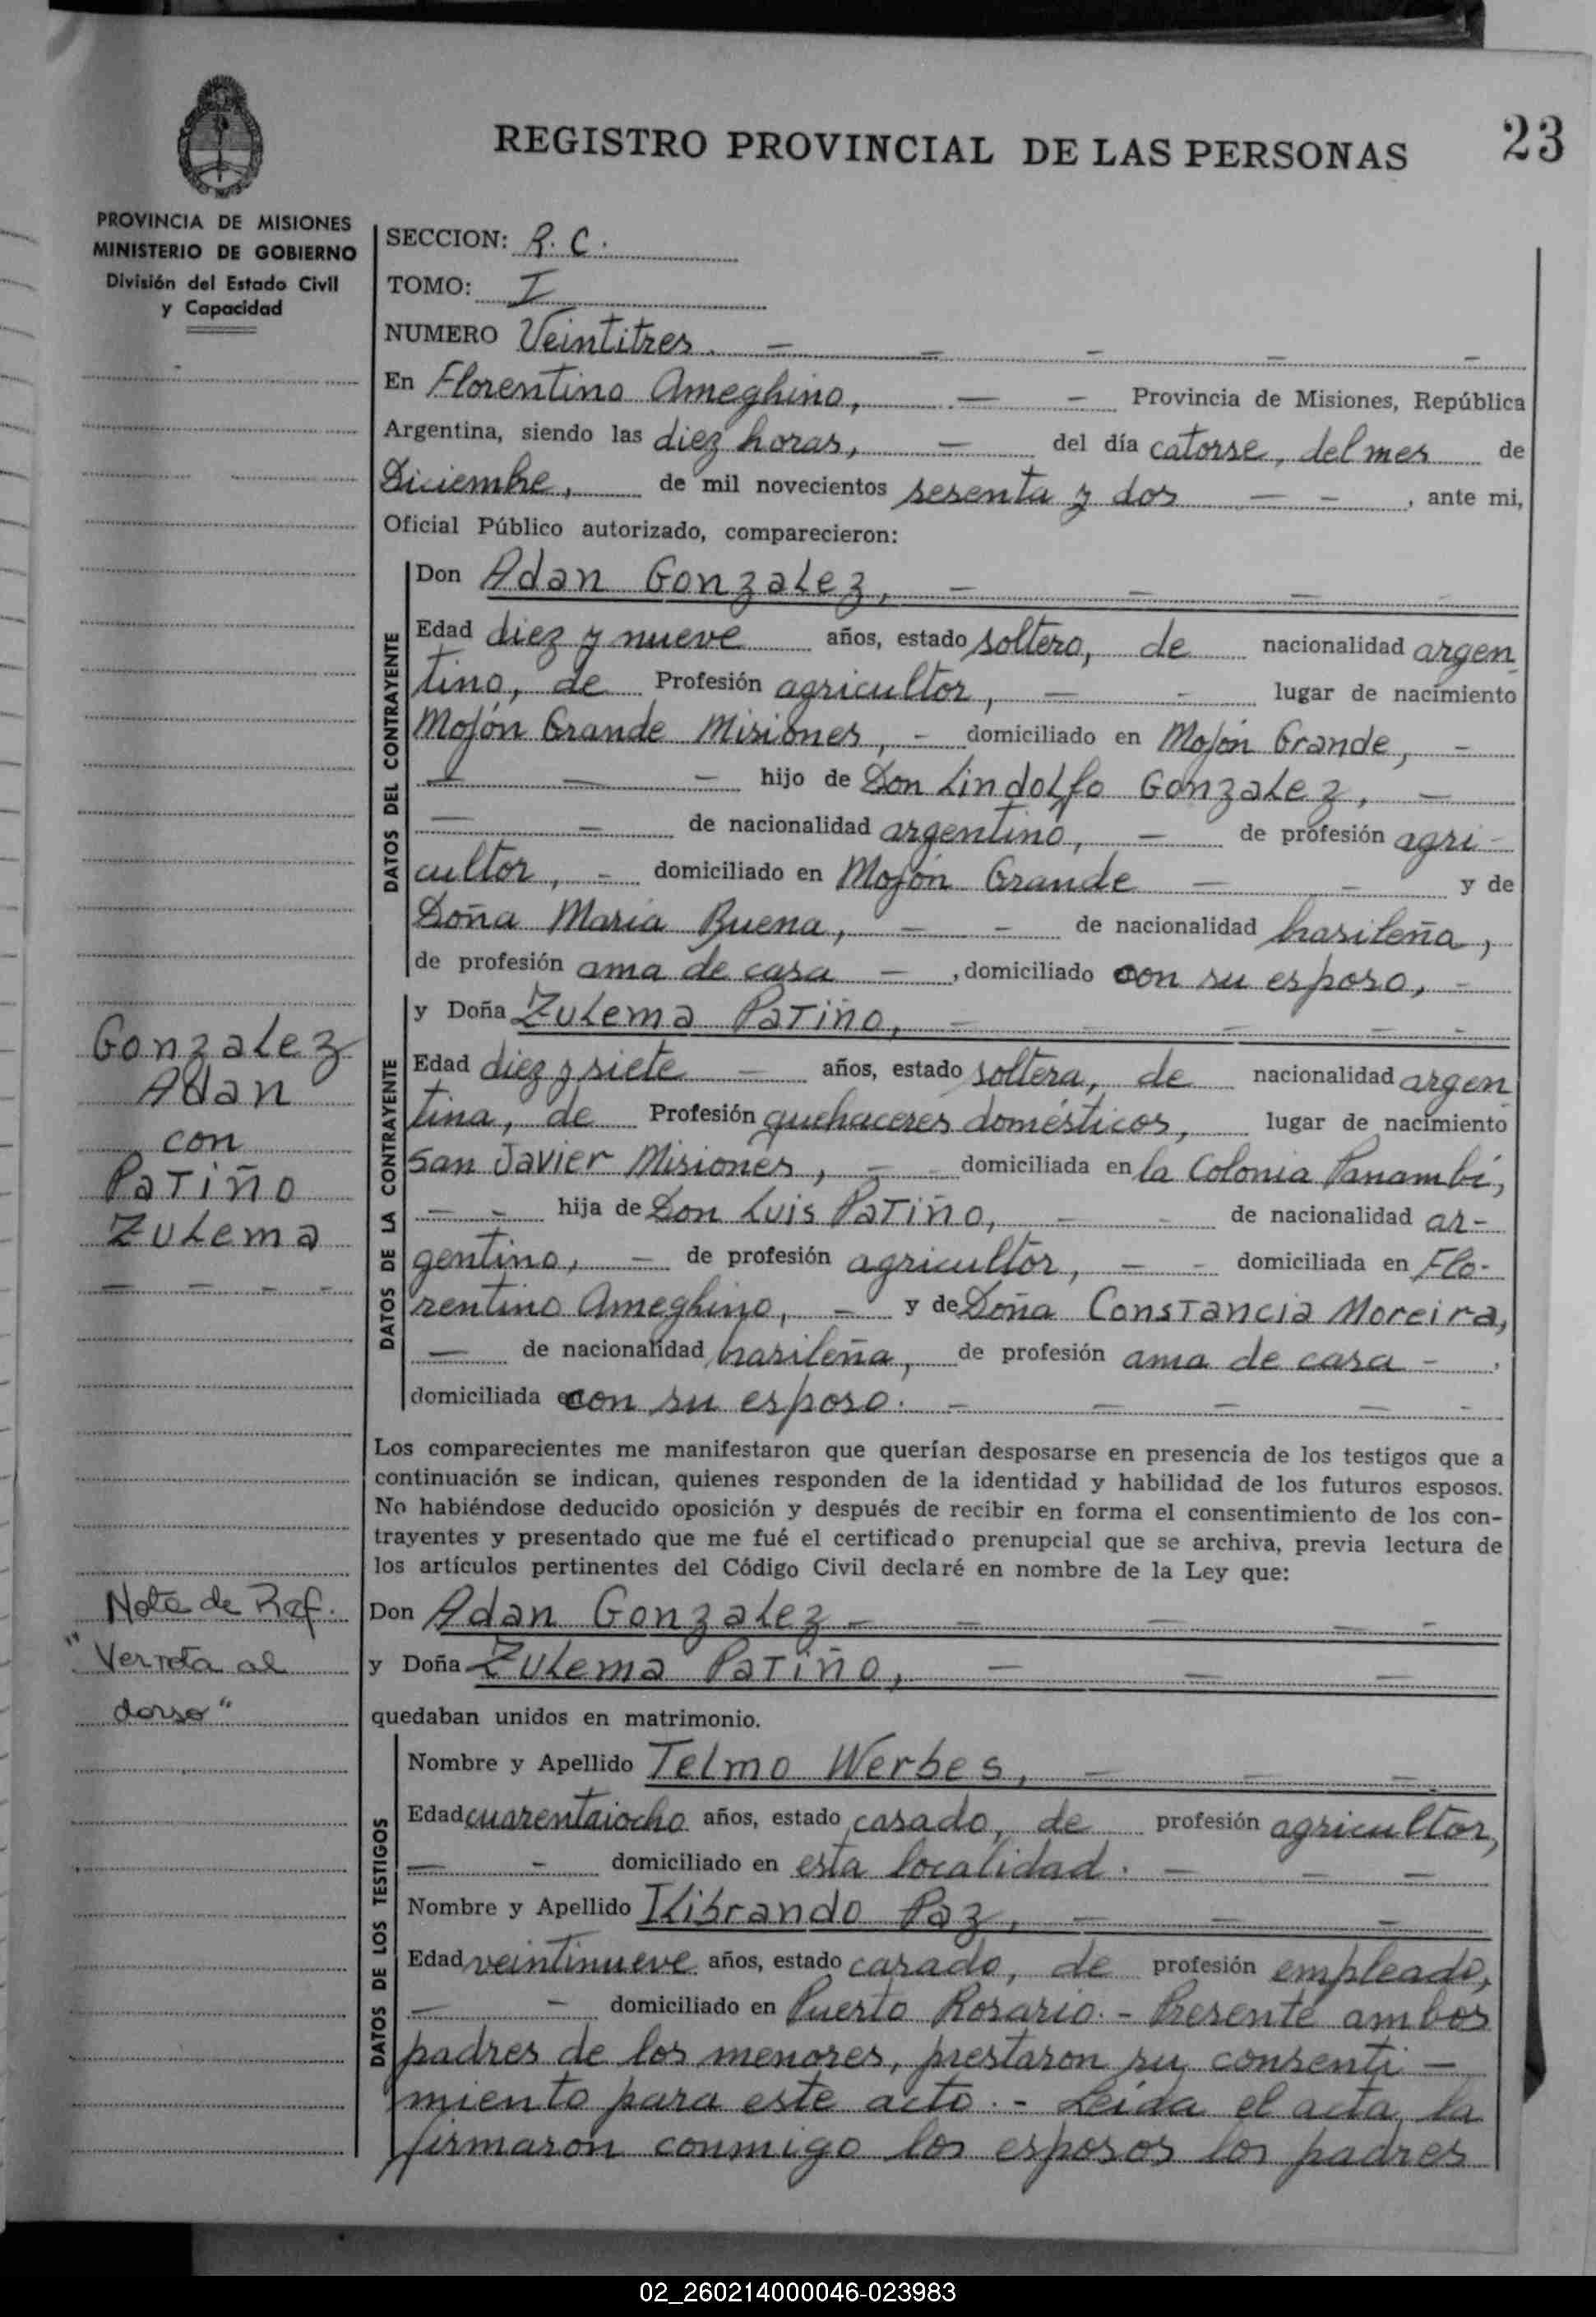 23
REGISTRO PROVINCIAL DE LAS PERSONAS
PROVINCIA DE MISIONES
MINISTERIO DE GOBIERNO
División del Estado Civil
y Capacidad
SECCION: R. C.
TOMO: I
NUMERO Veintitres. — — — — —
En Florentino Ameghino, — — Provincia de Misiones, República
Argentina, siendo las diez horas, — del día catorse, del mes de
Diciembre, de mil novecientos sesenta y dos — — , ante mi,
Oficial Público autorizado, comparecieron:
DATOS DEL CONTRAYENTE
Don Adan Gonzalez, — — — -
Edad diez y nueve años, estado soltero, de nacionalidad argen
tino, de Profesión agricultor, — - lugar de nacimiento
Mojón Grande Misiones, - domiciliado en Mojón Grande, -
— — — hijo de Don Lindolfo Gonzalez, —
— — de nacionalidad argentino, — de profesión agri-
cultor, - domiciliado en Mojón Grande — — y de
Doña Maria Buena, — - de nacionalidad brasileña,
de profesión ama de casa — , domiciliado con su esposo, -
DATOS DE LA CONTRAYENTE
y Doña Zulema Patiño, — — — — -
Edad diez y siete — años, estado soltera, de nacionalidad argen
tina, de Profesión quehaceres domésticos, lugar de nacimiento
San Javier Misiones, — - domiciliada en la Colonia Panambí,
— - hija de Don Luis Patiño, — - de nacionalidad ar-
gentino, — de profesión agricultor, — - domiciliada en Flo-
rentino Ameghino, — y de Doña Constancia Moreira,
— de nacionalidad brasileña, de profesión ama de casa - .
domiciliada en con su esposo. — — — — -
Gonzalez
Adan
con
Patiño
Zulema
— — — -
Los comparecientes me manifestaron que querían desposarse en presencia de los testigos que a
continuación se indican, quienes responden de la identidad y habilidad de los futuros esposos.
No habiéndose deducido oposición y después de recibir en forma el consentimiento de los con-
trayentes y presentado que me fué el certificado prenupcial que se archiva, previa lectura de
los artículos pertinentes del Código Civil declaré en nombre de la Ley que:
Don Adan Gonzalez — — — — -
y Doña Zulema Patiño, — — —
quedaban unidos en matrimonio.
Nota de Ref.
"Ver nota al
dorso"
DATOS DE LOS TESTIGOS
Nombre y Apellido Telmo Werbes, — — —
Edad cuarentaiocho años, estado casado, de profesión agricultor,
— - domiciliado en esta localidad. — — —
Nombre y Apellido Ilibrando Paz, — — —
Edad veintinueve años, estado casado, de profesión empleado,
— - domiciliado en Puerto Rosario. - Presente ambos
padres de los menores, prestaron su consenti-
miento para este acto. - Leída el acta, la
firmaron conmigo los esposos los padres
02_260214000046-023983